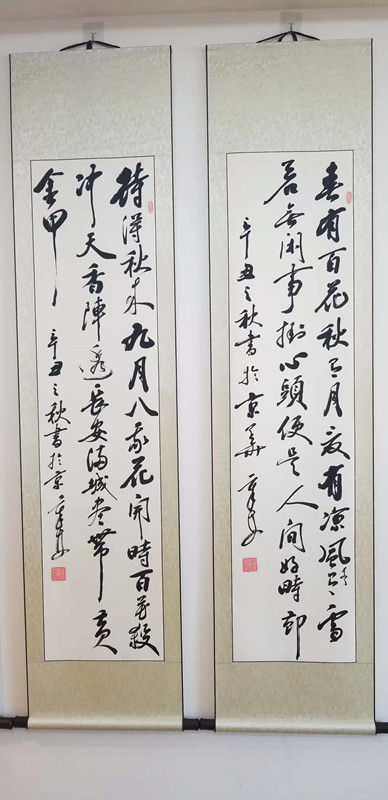 春有百花秋有月夏有凉風冬有雪
若無闲事掛心頭便是人间好時節
辛丑之秋書於京華
待得秋来九月八我花開時百花殺
冲天香陣透長安满城尽帶黄
金甲
辛丑之秋書於京